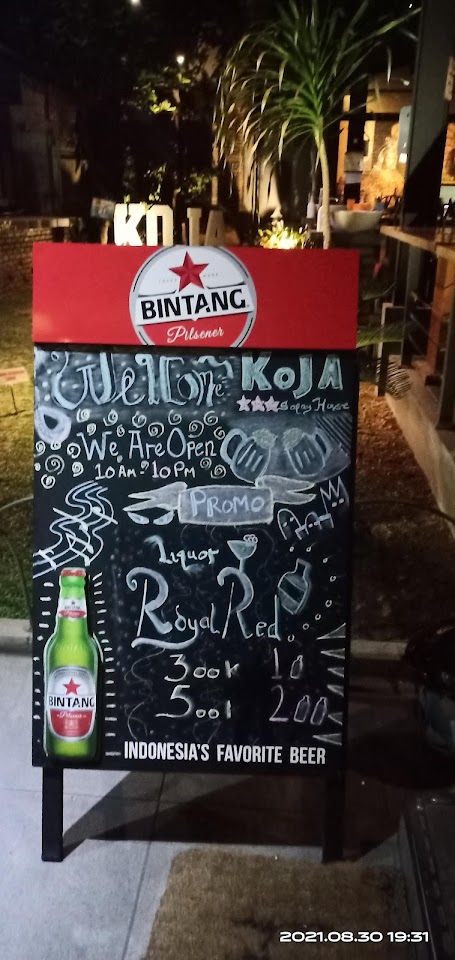 KOJA
BINTANG
Pilsener
Welcome KOJA
Happy Hour
We Are Open
10 Am - 10 Pm
PROMO
Liquor
Royal Red
300K 10
500
200
BINTANG
Pilsener
INDONESIA'S FAVORITE BEER
2021.08.30 19:31